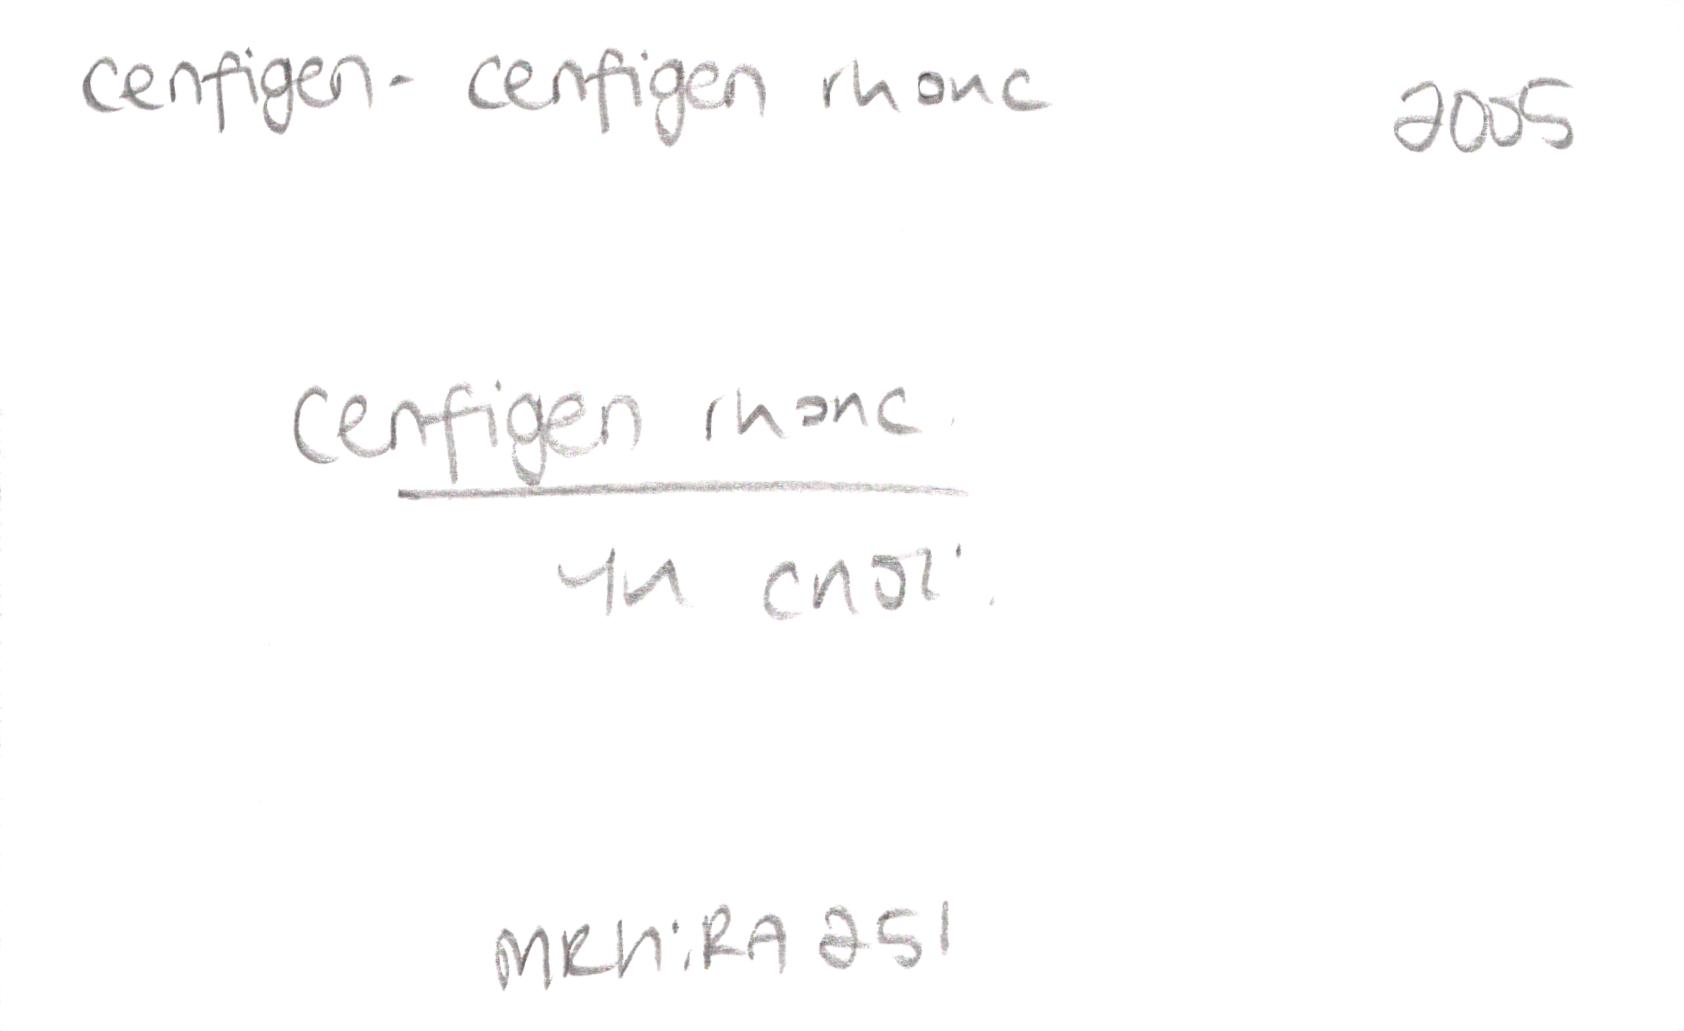 cenfigen - cenfigen rhonc 2005
cenfigen rhonc.
yn cnoi.
MRh:RA 251